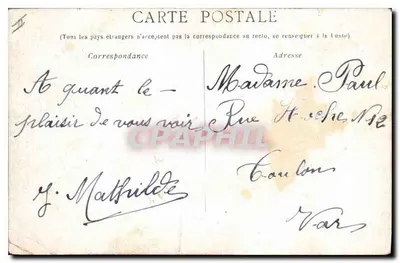 CARTE POSTALE
(Tous les pays étrangers n'acceptent pas la correspondance au recto, se renseigner à la Poste)
Correspondance
Adresse
A quant le -
plaisir de vous voir
Mathilde
Madame Paul
Rue Hoche N 12
Toulon
Var
CPARAMA